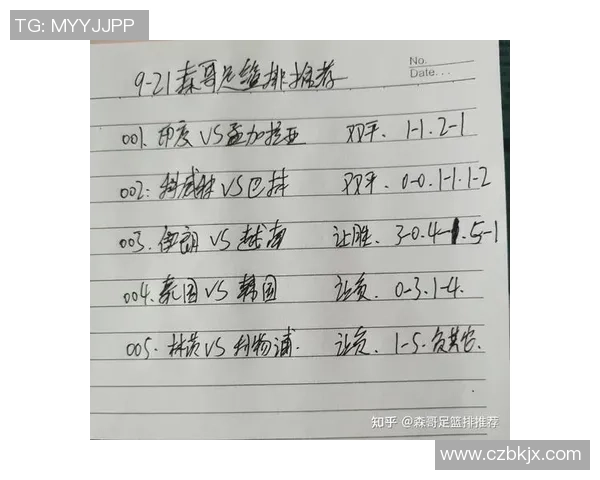 TG: MYYJJPP
No.
Date...
9-21森哥足篮排推荐
001. 印度 VS 孟加拉亚 双平. 1-1. 2-1
002: 科威特 VS 巴林 双平. 0-0. 1-1. 1-2
003. 伊朗 VS 越南 让胜. 3-0. 4-1. 5-1
004. 泰国 VS 韩国 让负. 0-3. 1-4.
005. 林茨 VS 利物浦. 让负. 1-5. 负其它.
知乎 @森哥足篮排推荐
www.czbkjx.com